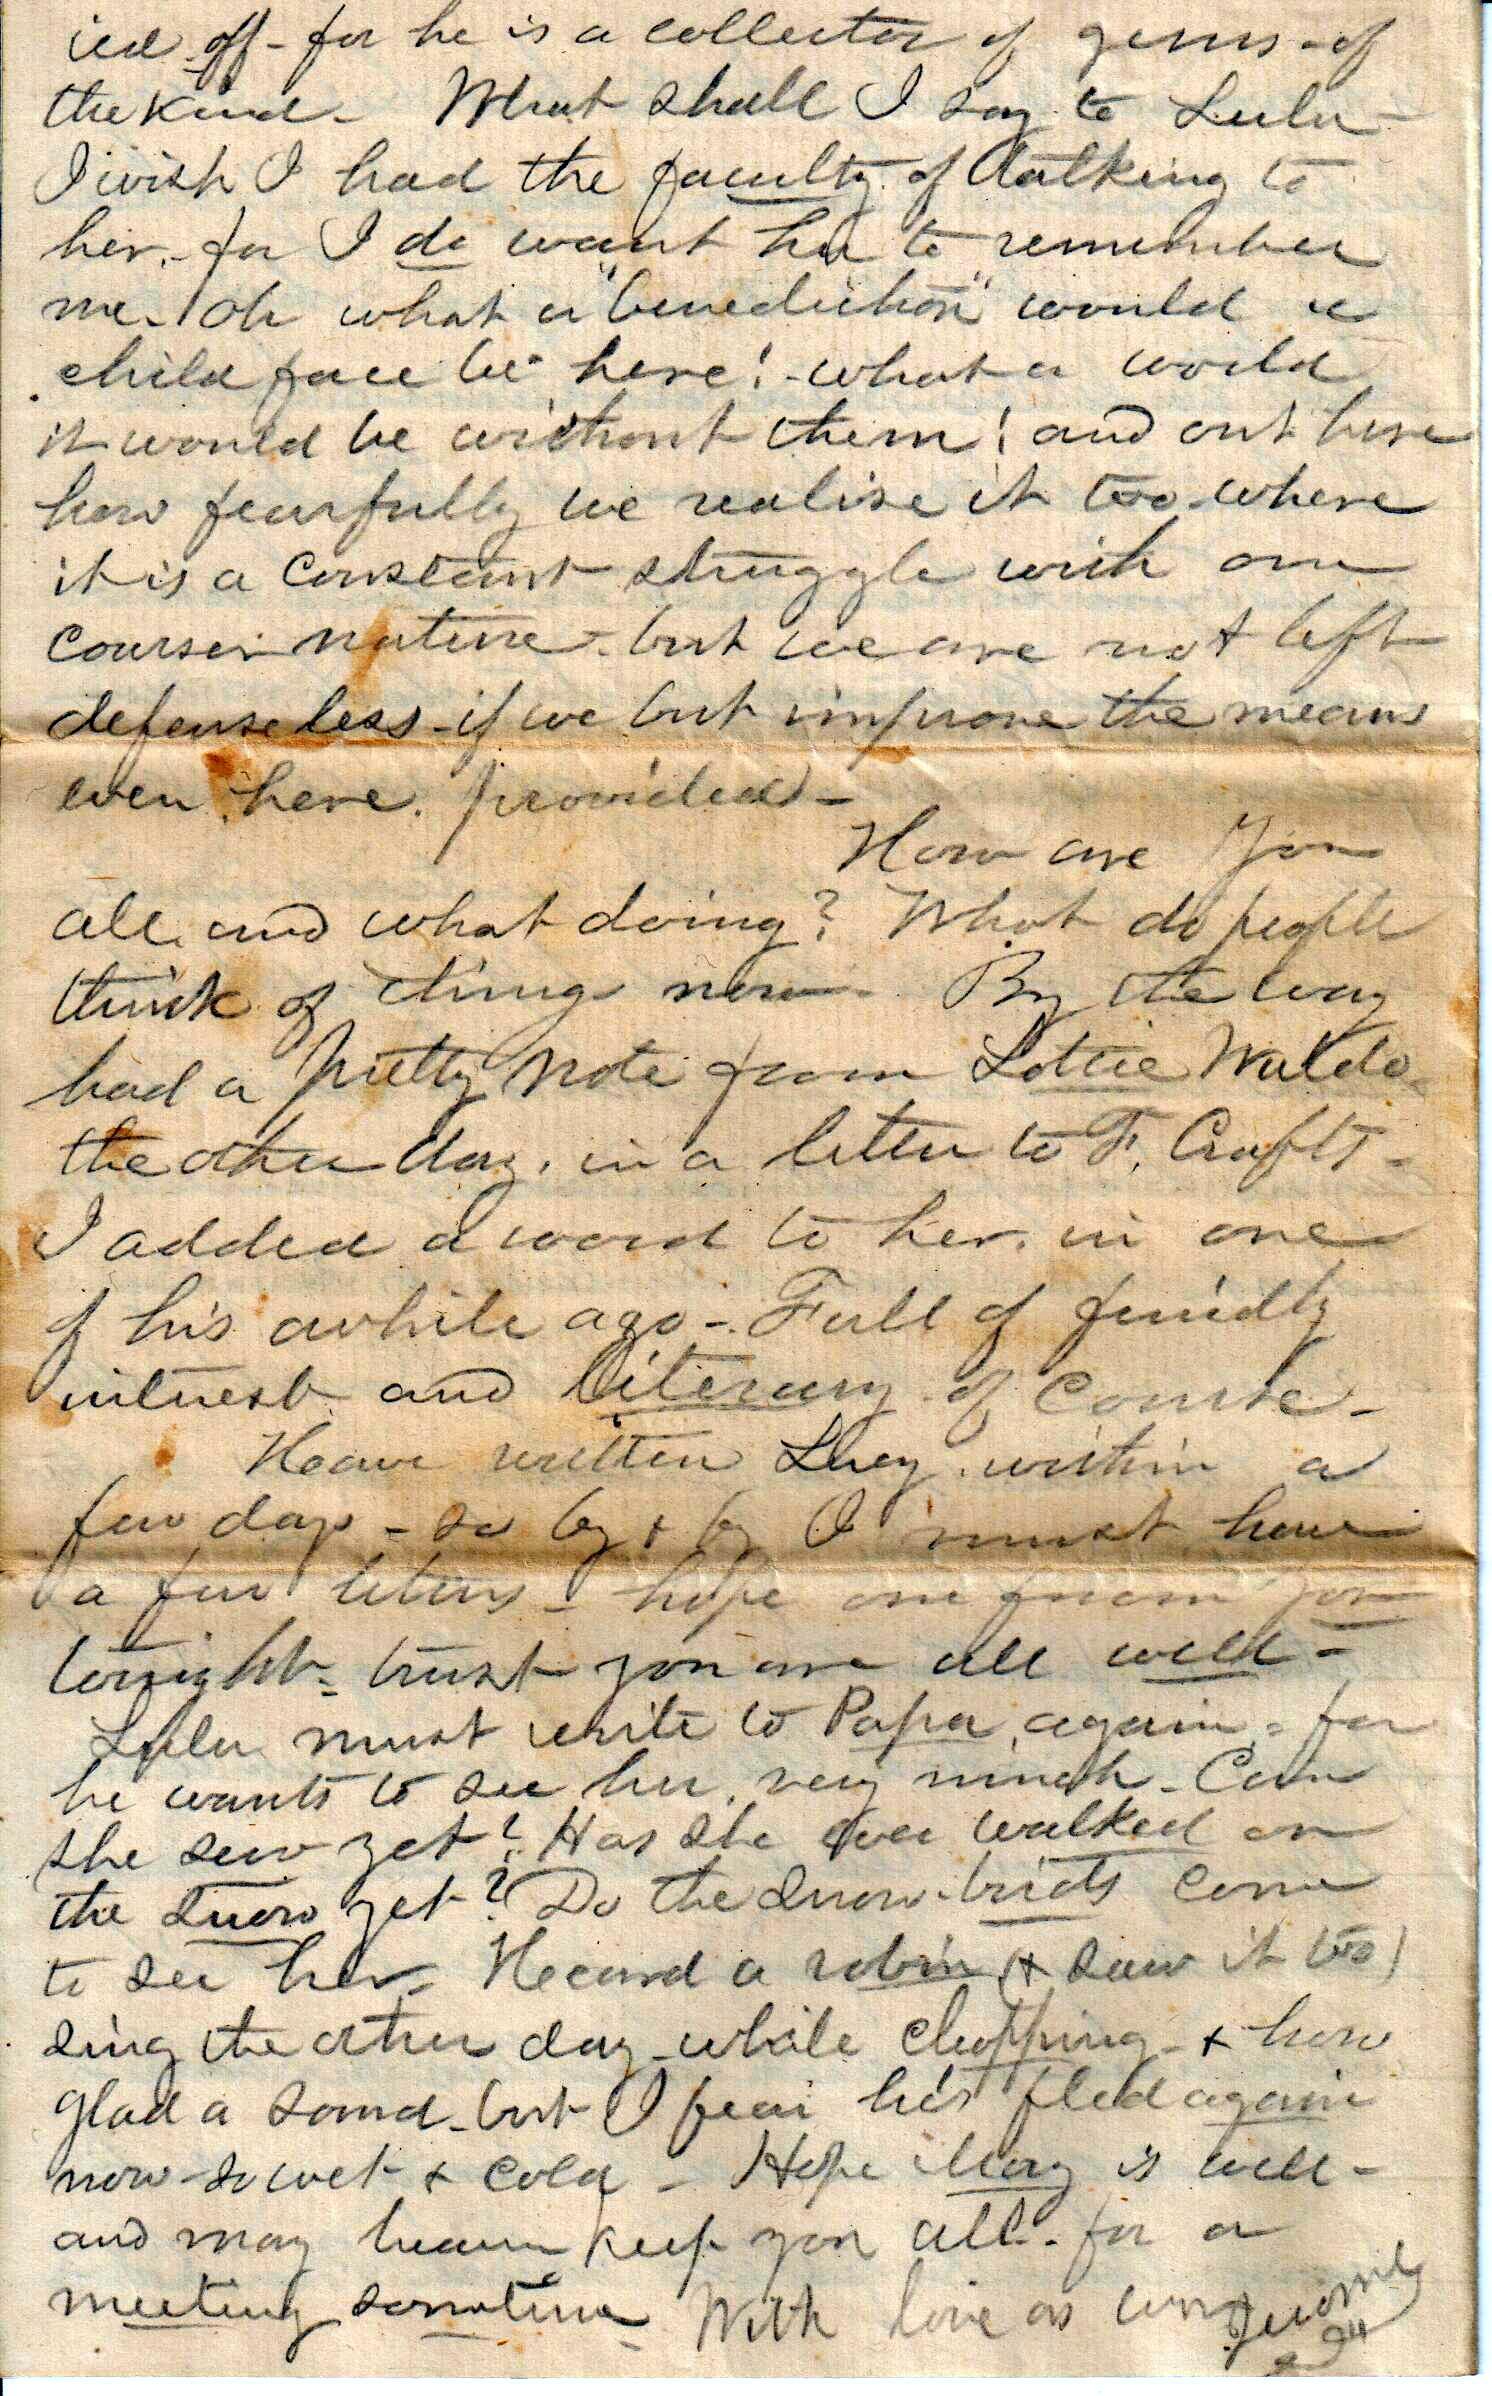 ied off - for he is a collector of gems - of
the kind - What shall I say to Lulu -
I wish I had the faculty of talking to
her. - for I do want her to remember
me - Oh what a "benediction" would a
child face be here! - what a world
it would be without them! and out here
how fearfully we realise it too where
it is a constant struggle with our
courser nature - but we are not left
defenseless - if we but improve the means
even here. provided -
How are You
all and what doing? What do people
think of things now - By the way
had a pretty note from Lottie Waldo
the other day. in a letter to F. Crafts -
I added a word to her. in one
of his awhile ago - Full of friendly
interest and literary of Course -
Have written Lucy. within a
few days - so by & by I must have
a few letters - hope one from you
tonight - trust you are all well -
Lulu must write to Papa again, - for
he wants to see her, very much - Can
she sew yet? Has she ever walked on
the snow yet? Do the snow-birds come
to see her - Heard a robin (& saw it too)
sing the other day - while chopping - & how
glad a sound - but I fear he's fled again
now - so wet & cold - Hope Mary is well -
and may heaven keep you all - for a
meeting sometime - With love as ever Jerome